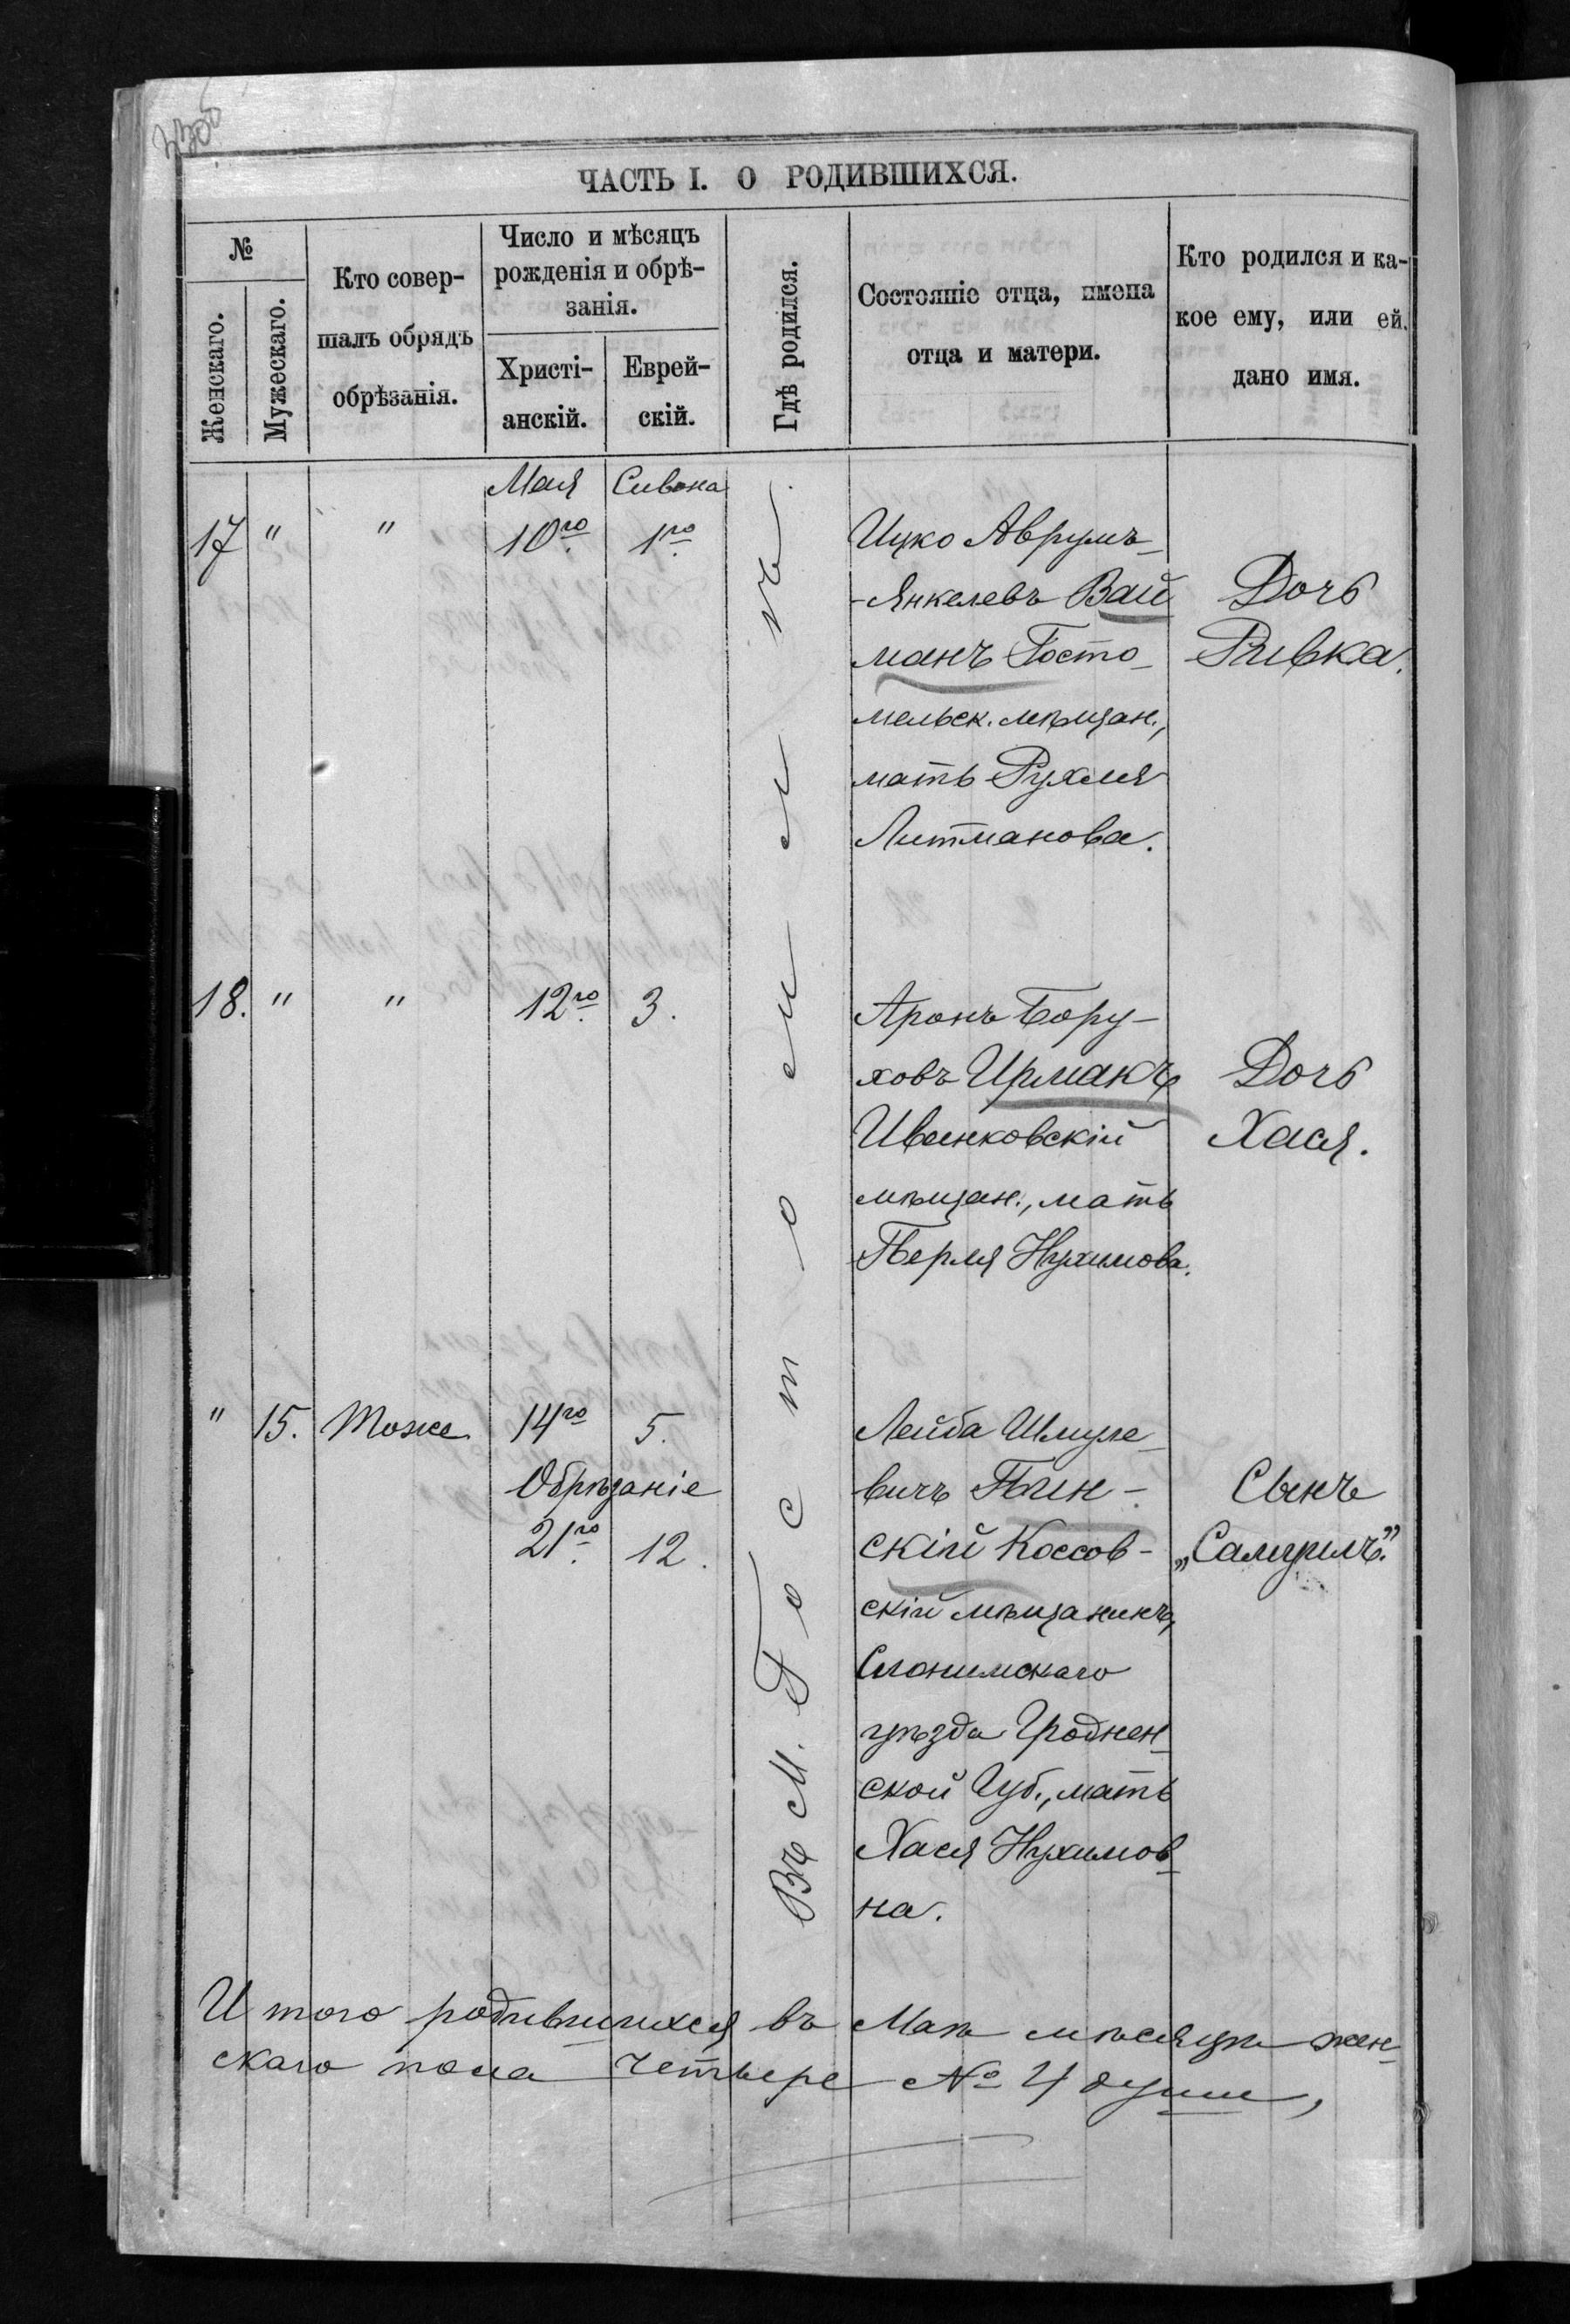 ЧАСТЬ I. О РОДИВШИХСЯ.
№
Женскаго.
Мужескаго.
Кто совер-
шалъ обрядъ
обрѣзанія.
Число и мѣсяцъ
рожденія и обрѣ-
занія.
Христі-
анскій.
Еврей-
скій.
Гдѣ родился.
Состояніе отца, имена
отца и матери.
Кто родился и ка-
кое ему, или ей.
дано имя.
Въ м. Гостомелѣ.
Мая Сивана
17 " " 10го 1го
Ицко Аврумъ-
-Янкелевъ Вай
манъ Госто-
мельск. мѣщан.,
мать Рухля
Литманова.
Дочь
Ривка.
18. " " 12го 3.
Аронъ Бору-
ховъ Ирмакъ
Иванковскій
мѣщан., мать
Перля Нухимова.
Дочь
Хася.
" 15. Тоже 14го 5.
Обрѣзаніе
21го 12.
Лейба Шмуле-
вичъ Пин-
скій Коссов-
скій мѣщанинъ,
Слонимскаго
уѣзда Гроднен-
ской Губ., мать
Хася Нухимов-
на.
Сынъ
„Самуилъ.”
Итого родившихся въ Маѣ мѣсяцѣ жен-
скаго пола Четыре № 4 души,